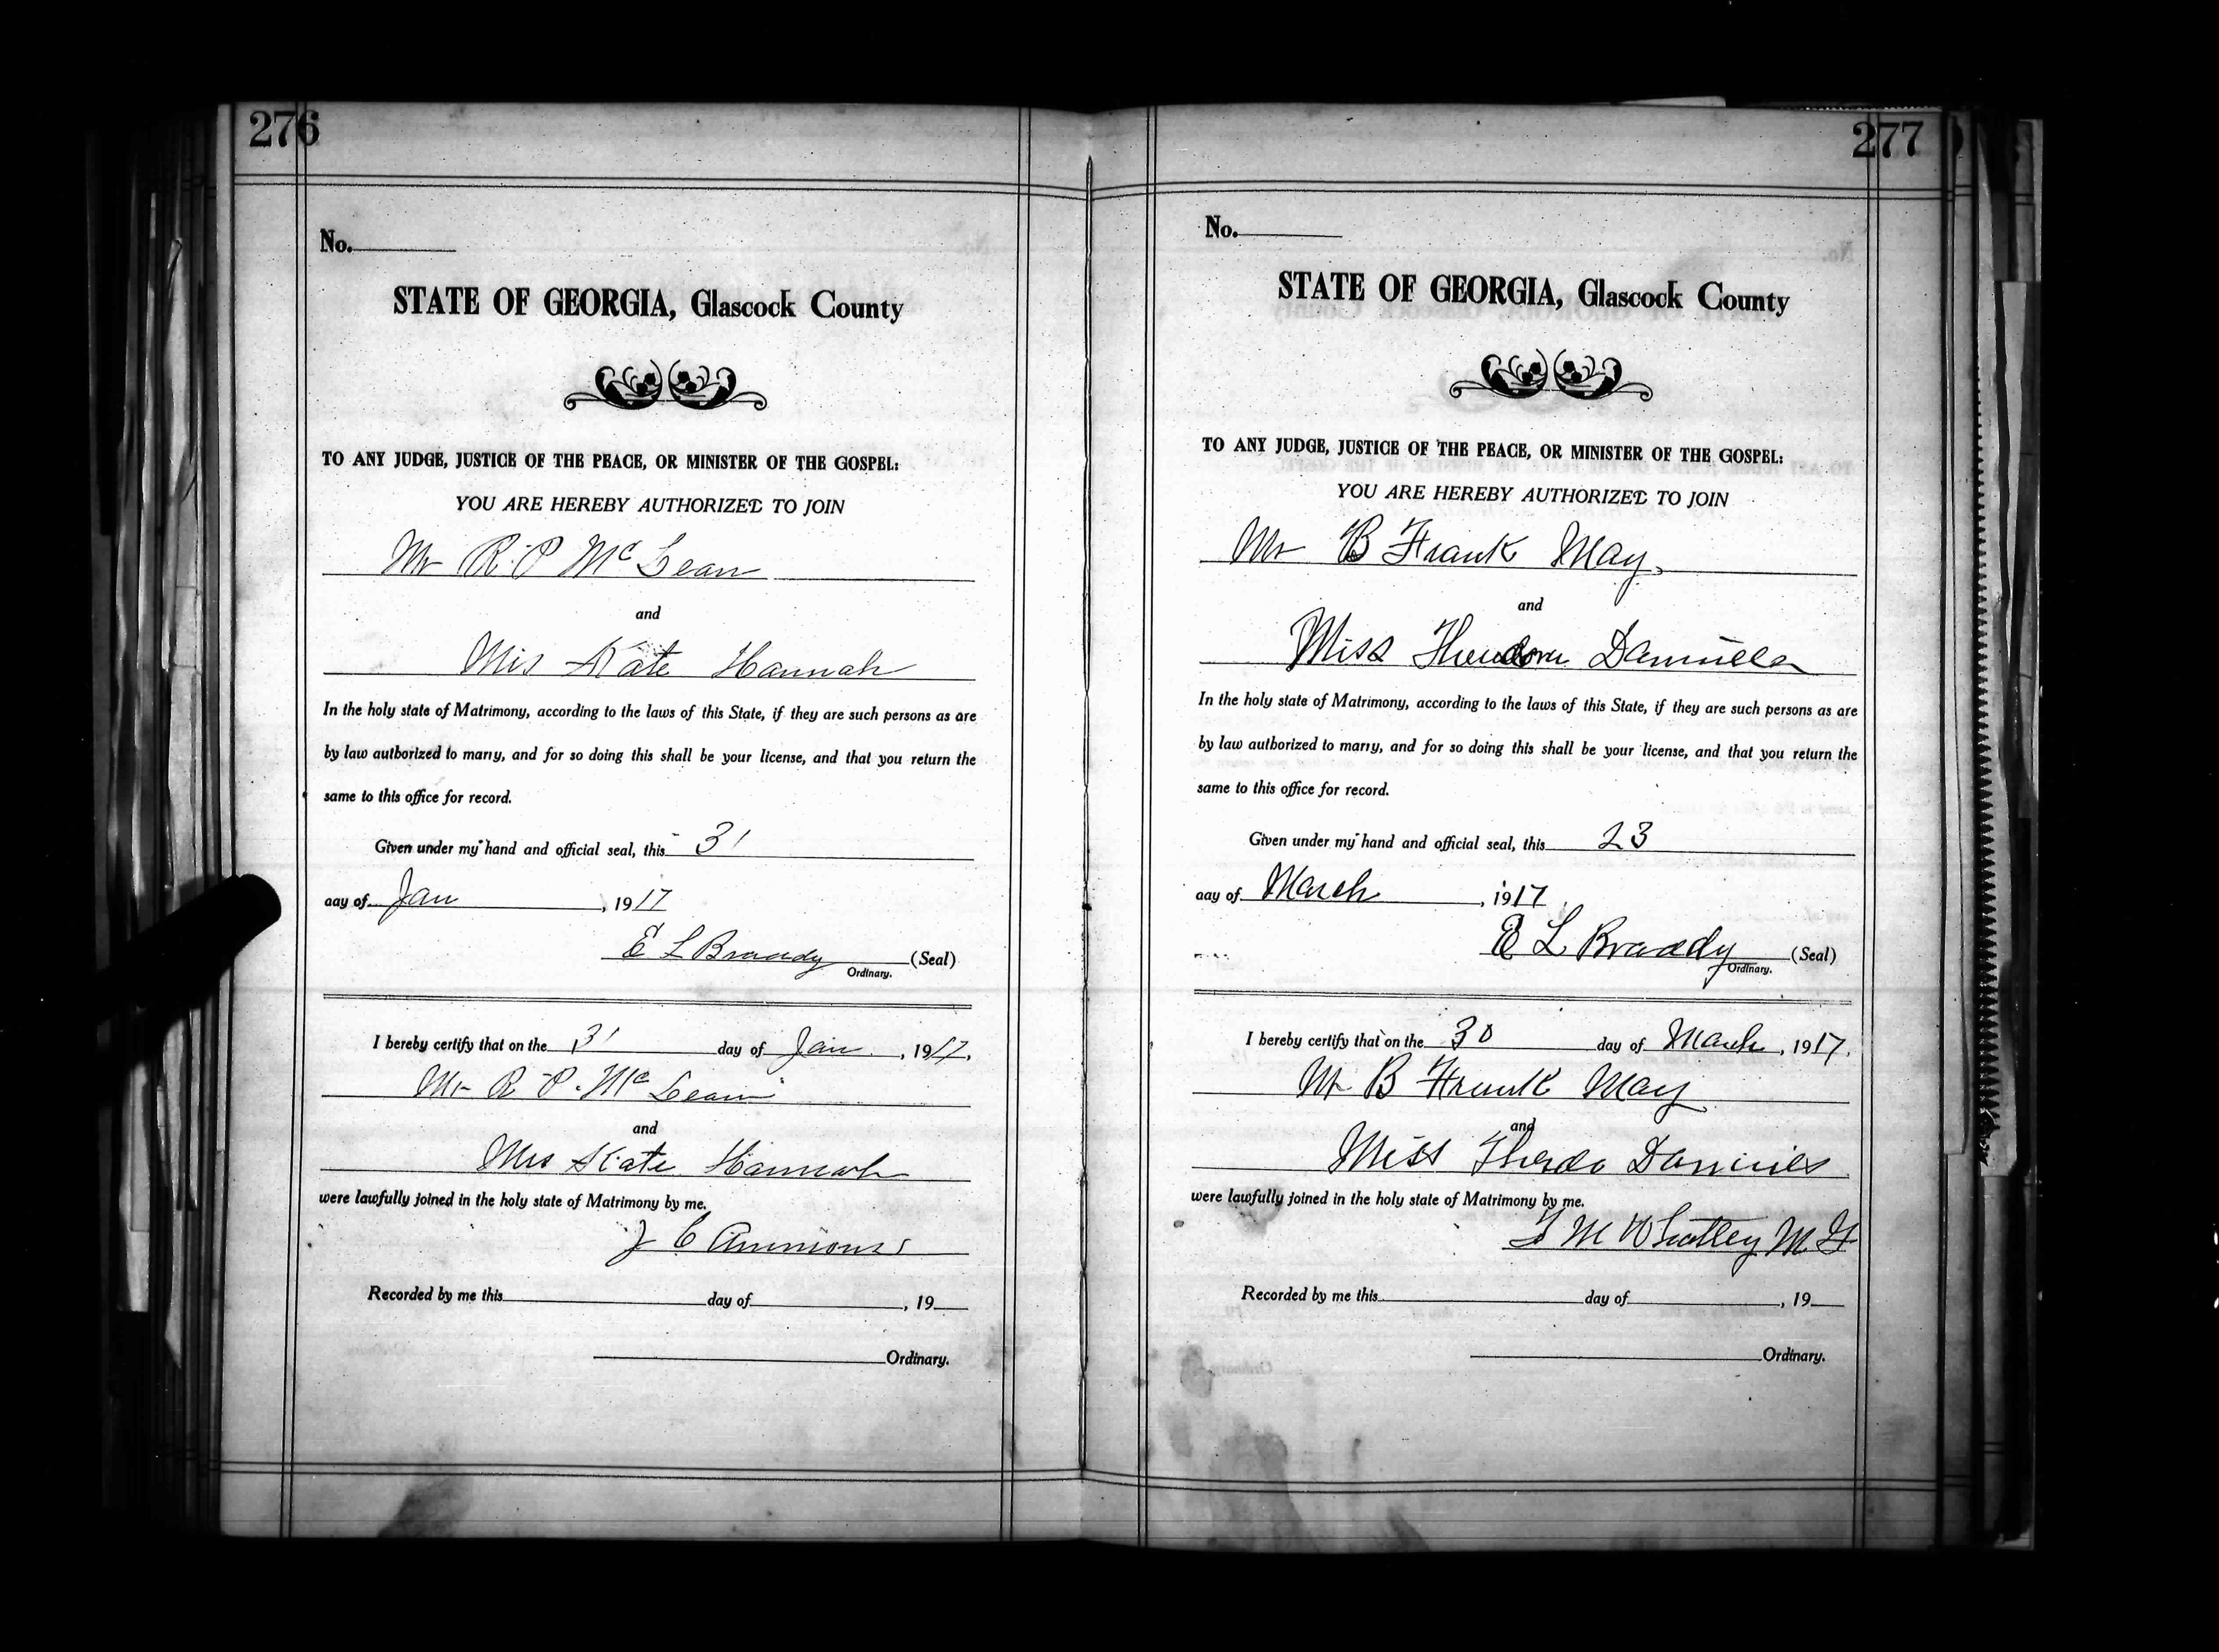 276
No.
STATE OF GEORGIA, Glascock County
TO ANY JUDGE, JUSTICE OF THE PEACE, OR MINISTER OF THE GOSPEL:
YOU ARE HEREBY AUTHORIZED TO JOIN
Mr R. P McLean
and
Mis Kate Hannah
In the holy state of Matrimony, according to the laws of this State, if they are such persons as are
by law authorized to marry, and for so doing this shall be your license, and that you return the
same to this office for record.
Given under my hand and official seal, this 31
day of Jan, 1917
E L Braddy (Seal)
Ordinary.
I hereby certify that on the 31 day of Jan, 1917.
Mr R P. McLean
and
Mrs Kate Hannah
were lawfully joined in the holy state of Matrimony by me.
J C Ammons
Recorded by me this day of , 19
Ordinary.
277
No.
STATE OF GEORGIA, Glascock County
TO ANY JUDGE, JUSTICE OF THE PEACE, OR MINISTER OF THE GOSPEL:
YOU ARE HEREBY AUTHORIZED TO JOIN
Mr B Frank May.
and
Miss
In the holy state of Matrimony, according to the laws of this State, if they are such persons as are
by law authorized to marry, and for so doing this shall be your license, and that you return the
same to this office for record.
Given under my hand and official seal, this 23
day of March, 1917
E L Braddy (Seal)
Ordinary.
I hereby certify that on the 30 day of March, 1917.
Mr B Frank May
and
Miss
were lawfully joined in the holy state of Matrimony by me.
M Whatley M G
Recorded by me this day of , 19
Ordinary.